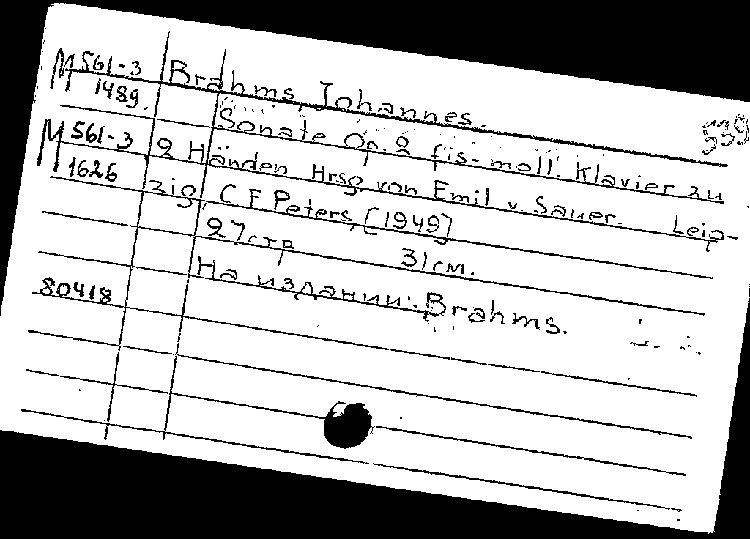 M 561-3
1489.
Brahms, Johannes.
539
Sonate Op. 2 fis-moll. Klavier zu
M 561-3
1626
2 Händen Hrsg. von Emil v. Sauer. Leip-
zig C F Peters, [1949]
27 стр 31 см.
На издании: Brahms.
80418